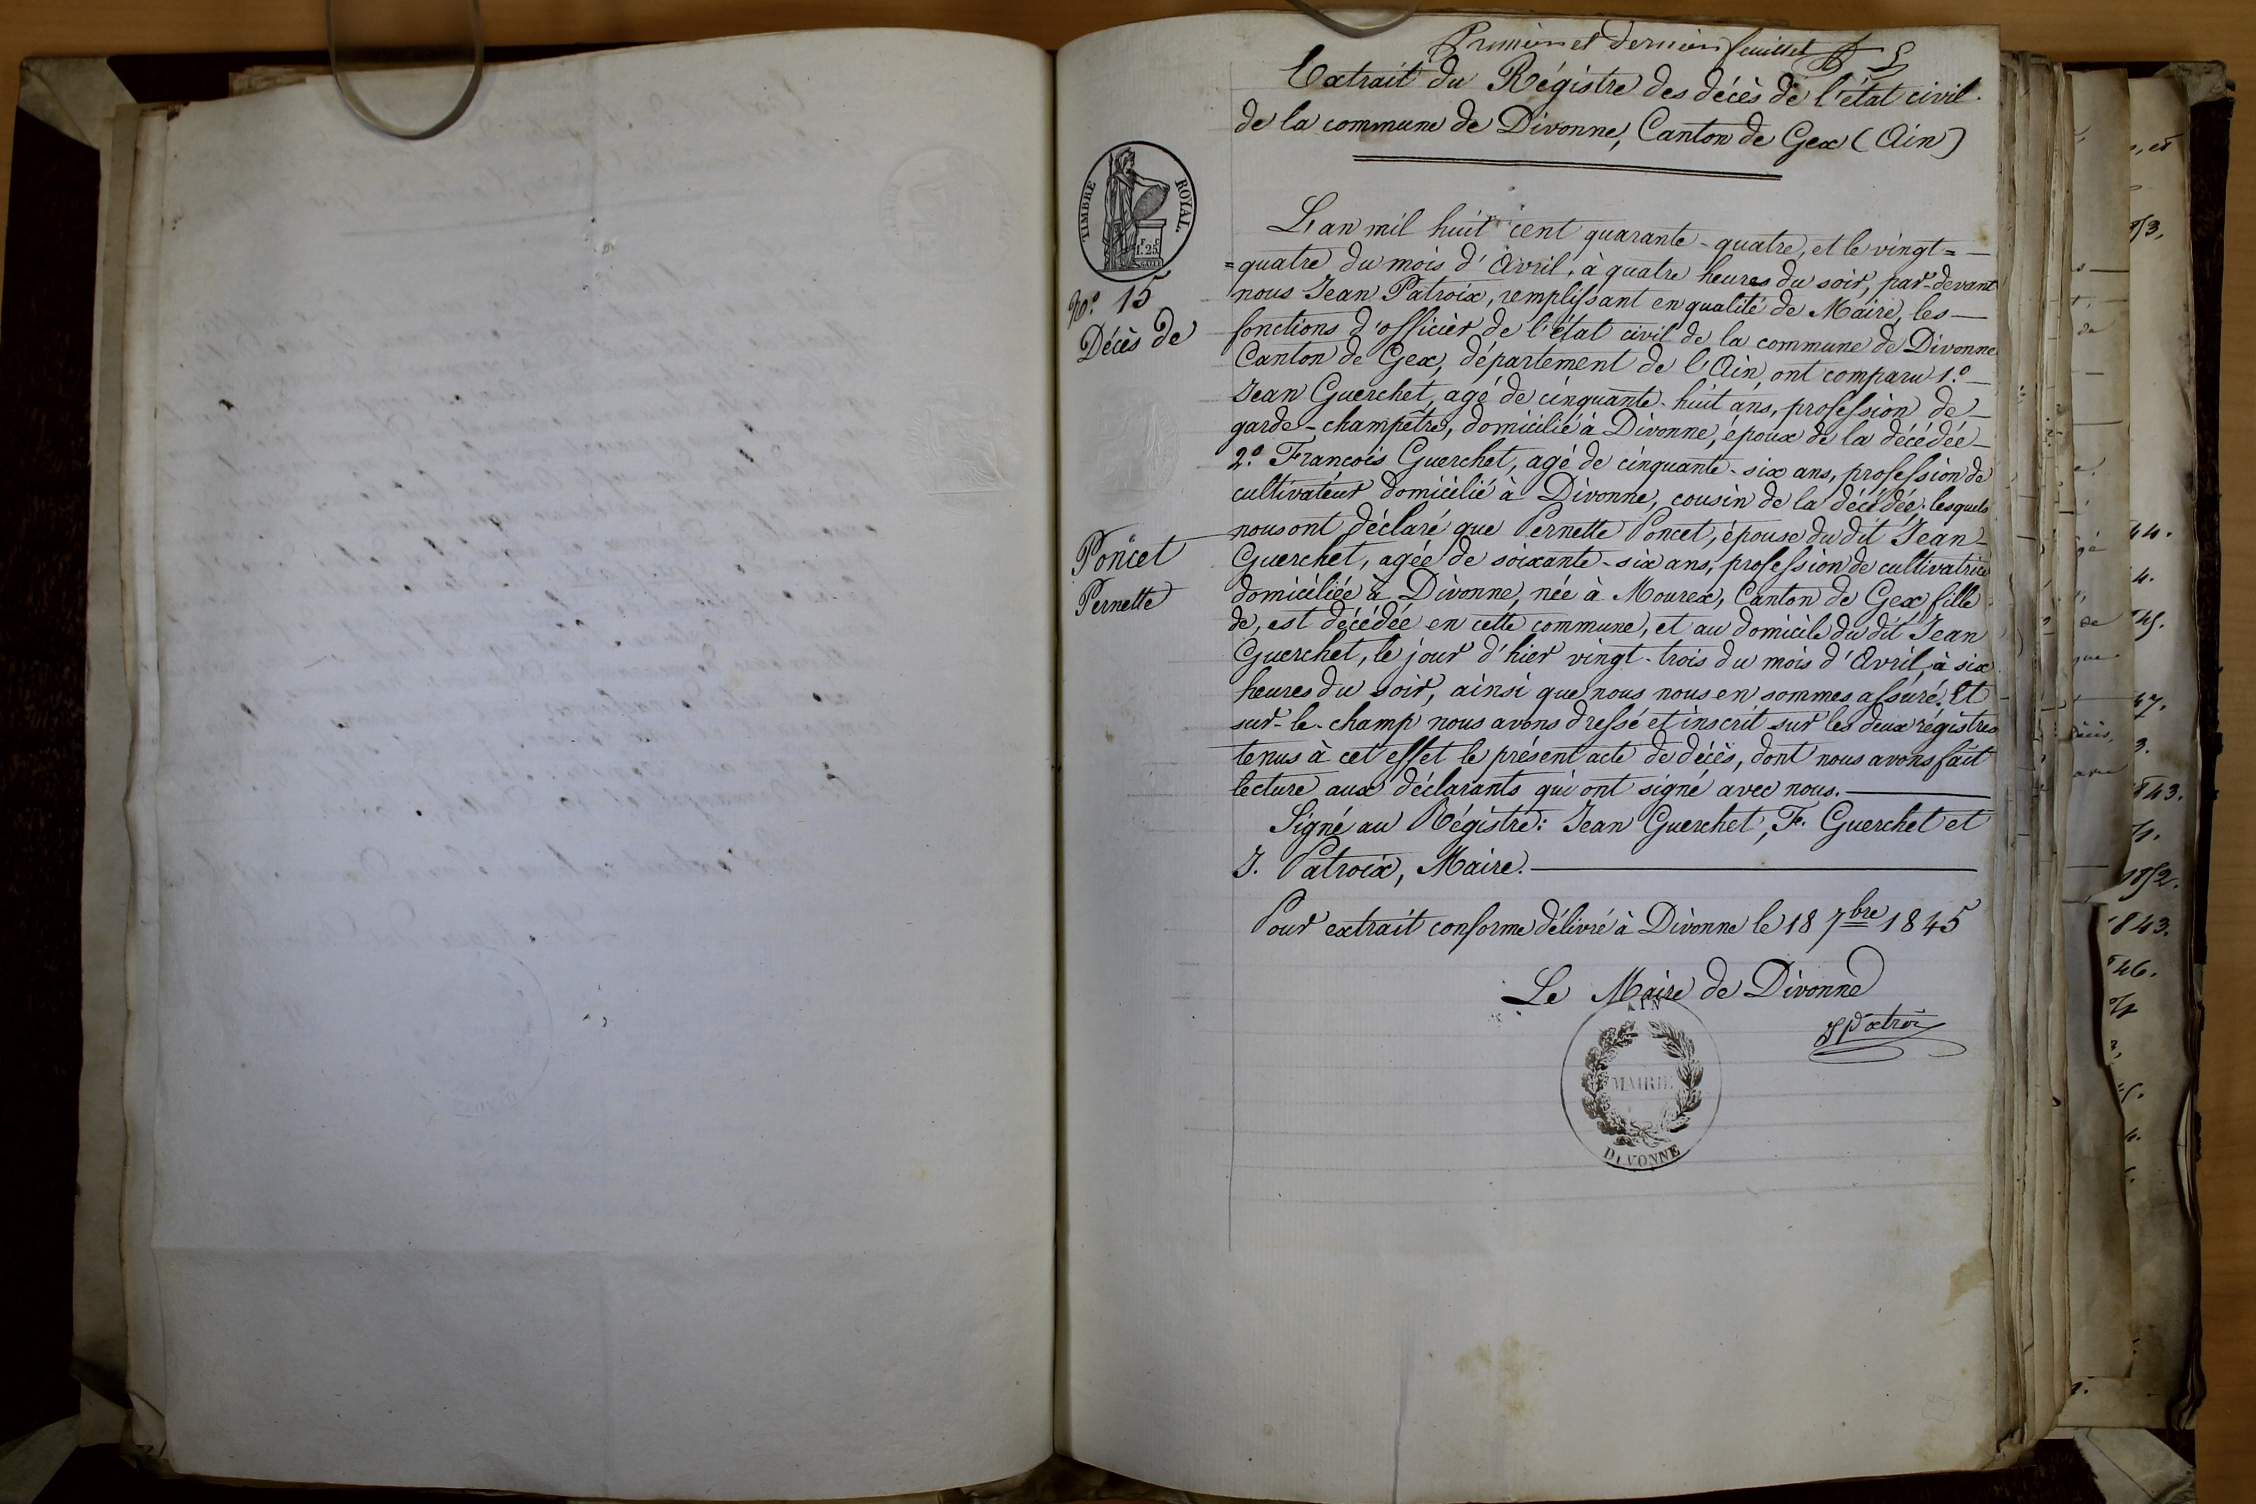 Premier et dernier feuillet
Extrait du Régistre des décès de l'état civil.
de la commune de Divonne, Canton de Gex (Ain)
TIMBRE ROYAL.
1.F 25
L'an mil huit cent quarante-quatre, et le vingt=
=quatre du mois d'Avril, à quatre heures du soir, par-devant
nous Jean Patroix, remplissant en qualité de Maire, les
N.o 15
fonctions d'officier de l'état civil de la commune de Divonne
Décès de
Canton de Gex, département de l'Ain, ont comparu 1.o
Jean Guerchet, agé de cinquante-huit ans, profession de
garde-champêtre, domicilié à Divonne, époux de la décédée
2.o Francois Guerchet, agé de cinquante-six ans, profession de
cultivateur domicilié à Divonne, cousin de la décédée; lesquels
nous ont déclaré que Pernette Poncet, épouse du dit Jean
Poncet
Guerchet, agée de soixante-six ans, profession de cultivatrice
Pernette
domiciliée à Divonne, née à Mourex, Canton de Gex fille
de, est décédée en cette commune, et au domicile du dit Jean
Guerchet, le jour d'hier vingt-trois du mois d'Avril, à six
heures du soir, ainsi que nous nous en sommes assuré. Et
sur-le-champ nous avons dressé et inscrit sur les deux régistres
tenus à cet effet le présent acte de décès, dont nous avons fait
lecture aux déclarants qui ont signé avec nous.
Signé au Régistre: Jean Guerchet, F. Guerchet et
J. Patroix, Maire.
Pour extrait conforme délivré à Divonne le 18 7bre 1845
Le Maire de Divonne
JPatroix
AIN
MAIRIE
DIVONNE